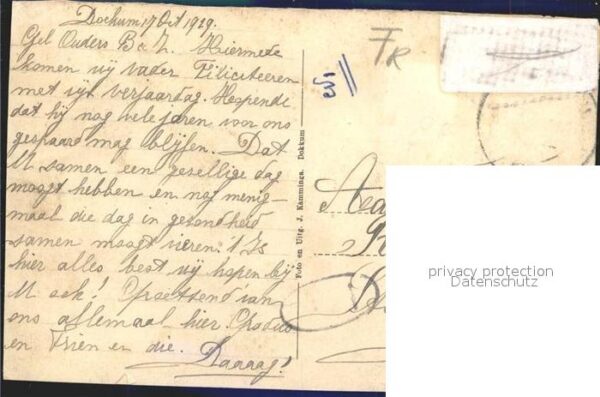 Dockum 17 Oct 1929.
Gel Ouders B & Z. Hiermede
komen wij vader Filiciteeren
met zijn verjaardag. Hopende
dat hij nog vele jaren voor ons
gespaard mag blijfen. Dat
U samen een gesellige dag
moogt hebben en nog menig-
maal die dag in gesondheid
samen moogt vieren. 't Is
hier alles best wij hopen bij
U ook! Groettend van
ons allemaal hier.
en Trien en die. Daaaag!
Foto en Uitg. J. Kamminga. Dokkum
FR
Aa
privacy protection
Datenschutz